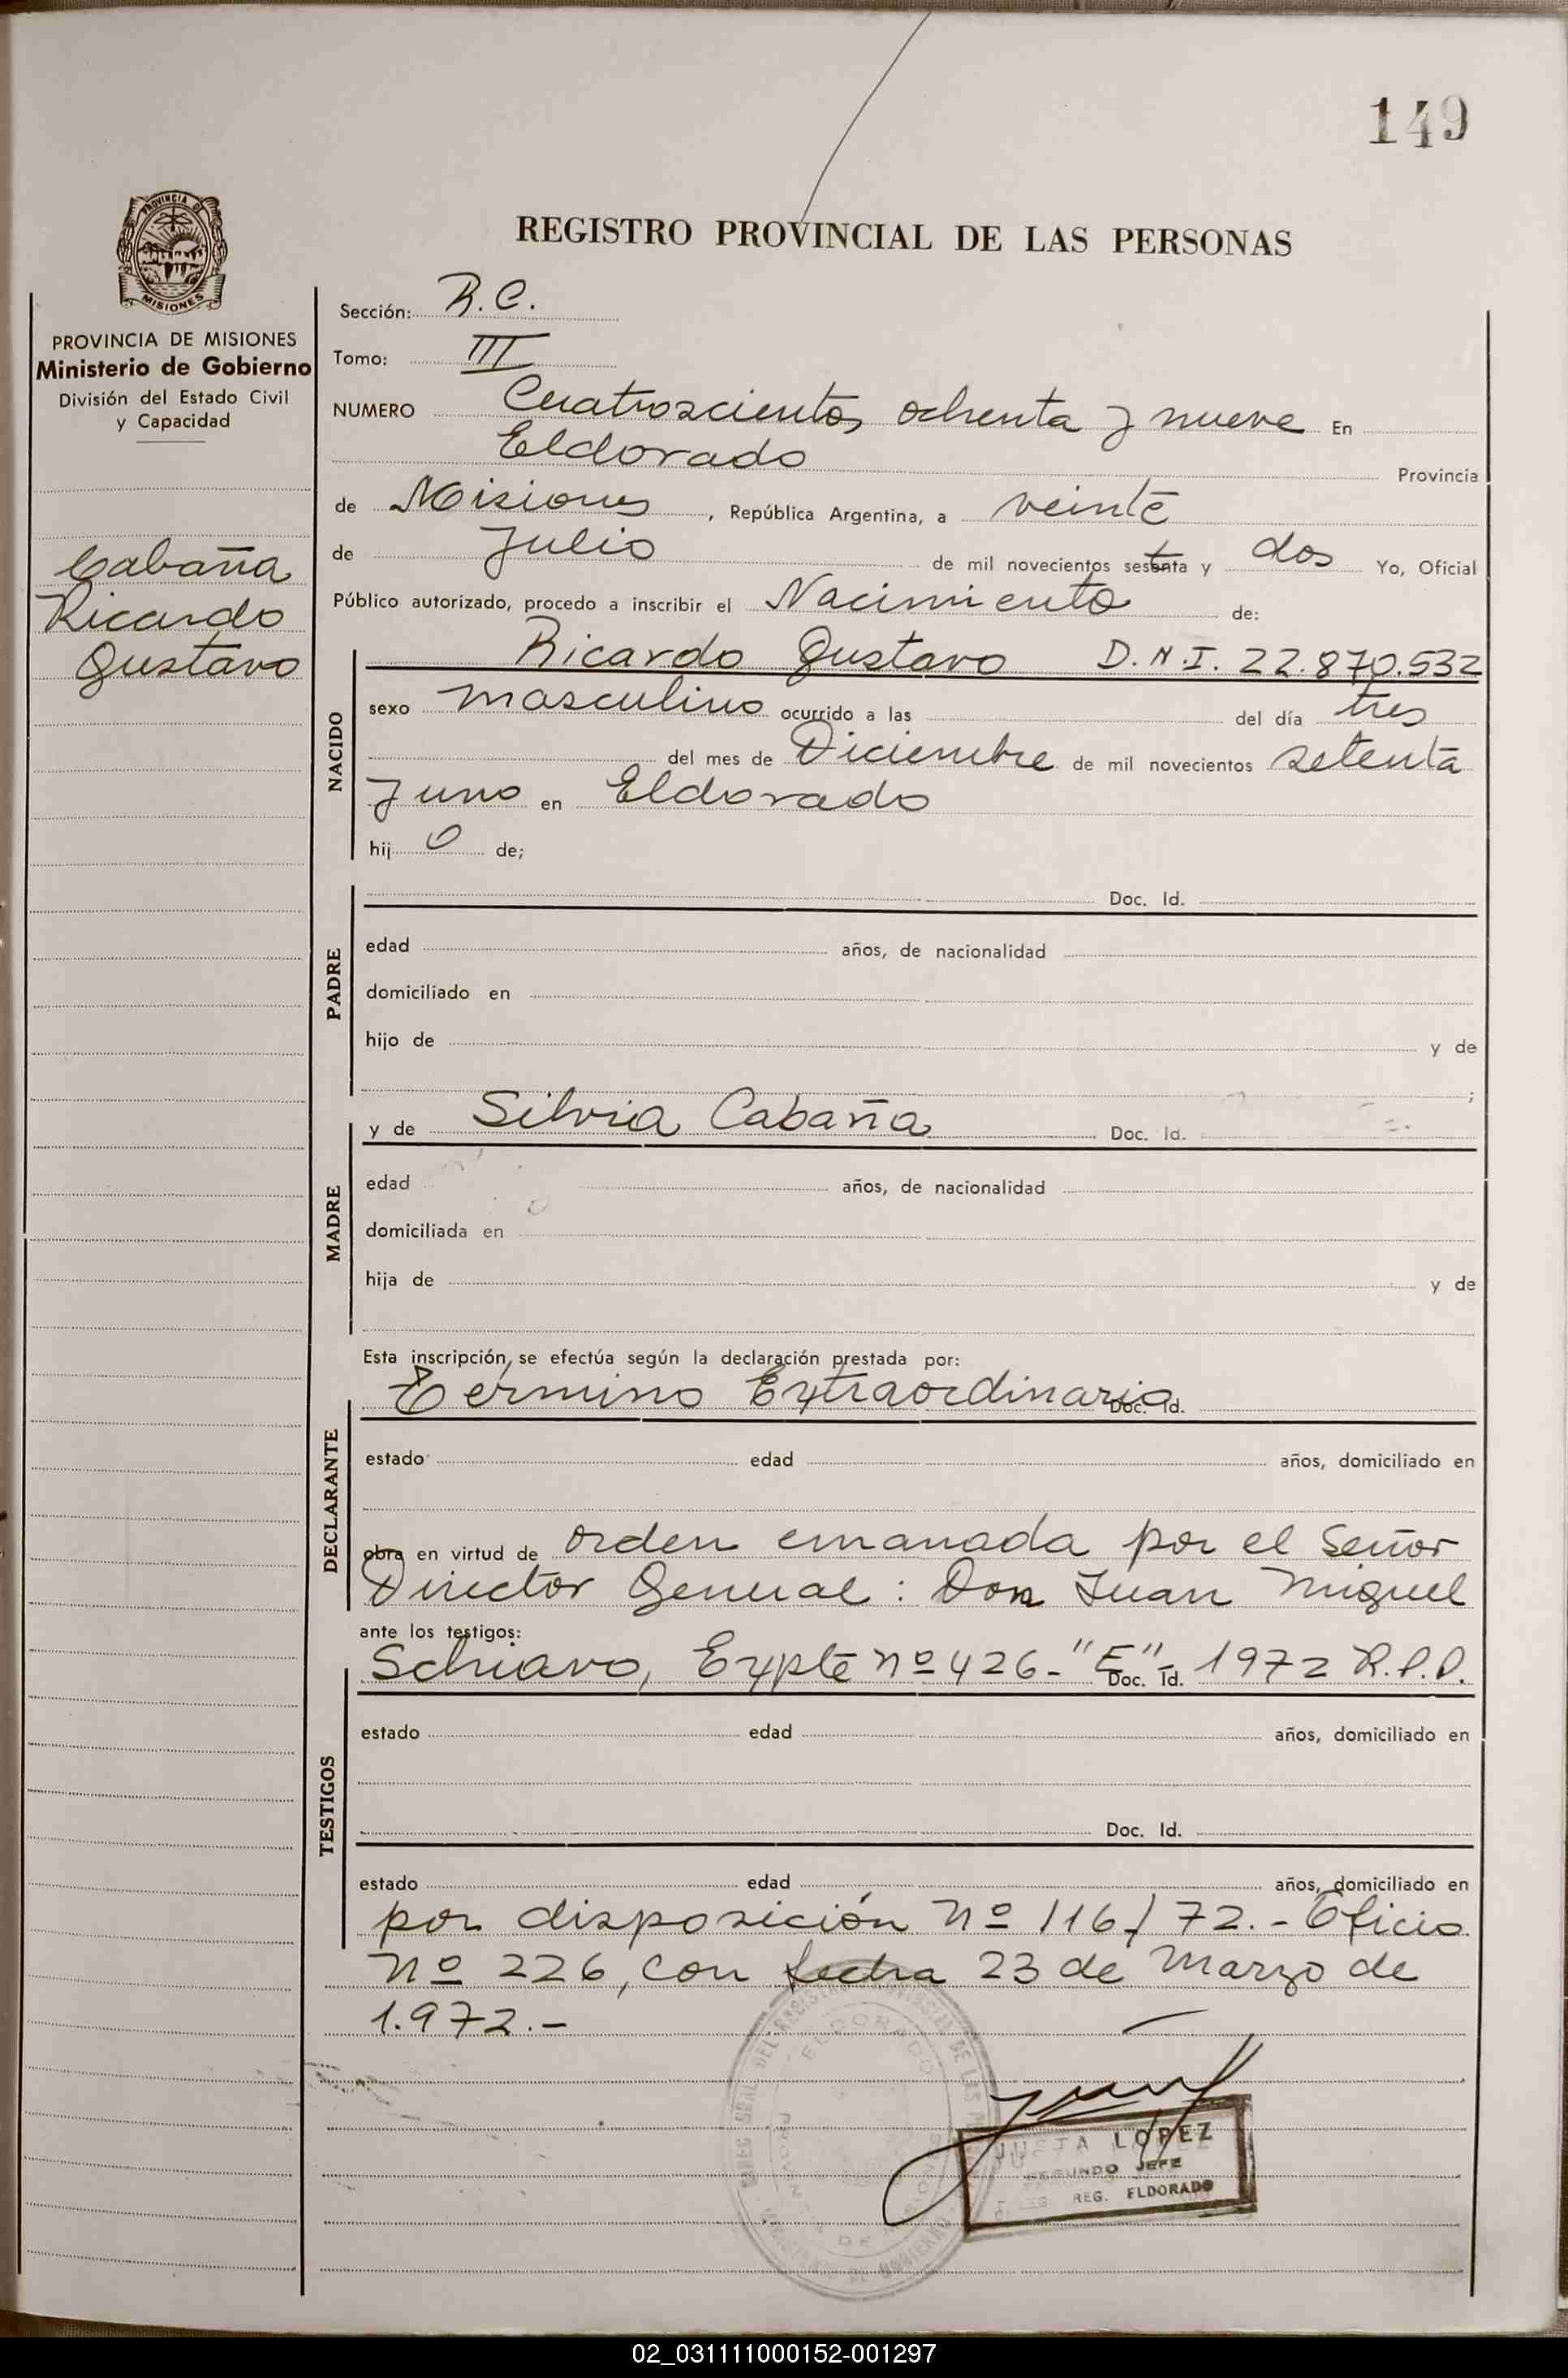 149
PROVINCIA DE
MISIONES
REGISTRO PROVINCIAL DE LAS PERSONAS
PROVINCIA DE MISIONES
Ministerio de Gobierno
División del Estado Civil
y Capacidad
Cabaña
Ricardo
Gustavo
Sección: R.C.
Tomo: III
NUMERO Cuatroscientos ochenta y nueve En
Eldorado Provincia
de Misiones, República Argentina, a veinte
de Julio de mil novecientos sesenta y dos Yo, Oficial
Público autorizado, procedo a inscribir el Nacimiento de:
NACIDO
Ricardo Gustavo D.N.I. 22.870.532
sexo masculino ocurrido a las del día tres
del mes de Diciembre de mil novecientos setenta
y uno en Eldorado
hij o de;
PADRE
Doc. Id.
edad años, de nacionalidad
domiciliado en
hijo de y de
;
MADRE
y de Silvia Cabaña Doc. Id.
edad años, de nacionalidad
domiciliada en
hija de y de
Esta inscripción, se efectúa según la declaración prestada por:
DECLARANTE
Término Extraordinario Doc. Id.
estado edad años, domiciliado en
obra en virtud de orden emanada por el Señor
Director General: Don Juan Miguel
ante los testigos:
TESTIGOS
Schiavo, Expte nº 426-"E"- 1972 R.P.P. Doc. Id.
estado edad años, domiciliado en
Doc. Id.
estado edad años, domiciliado en
por disposición nº 116/72.- Oficio
nº 226, con fecha 23 de Marzo de
1.972.-
ELDORADO
LOPEZ
SEGUNDO JEFE
REG. ELDORADO
02_031111000152-001297